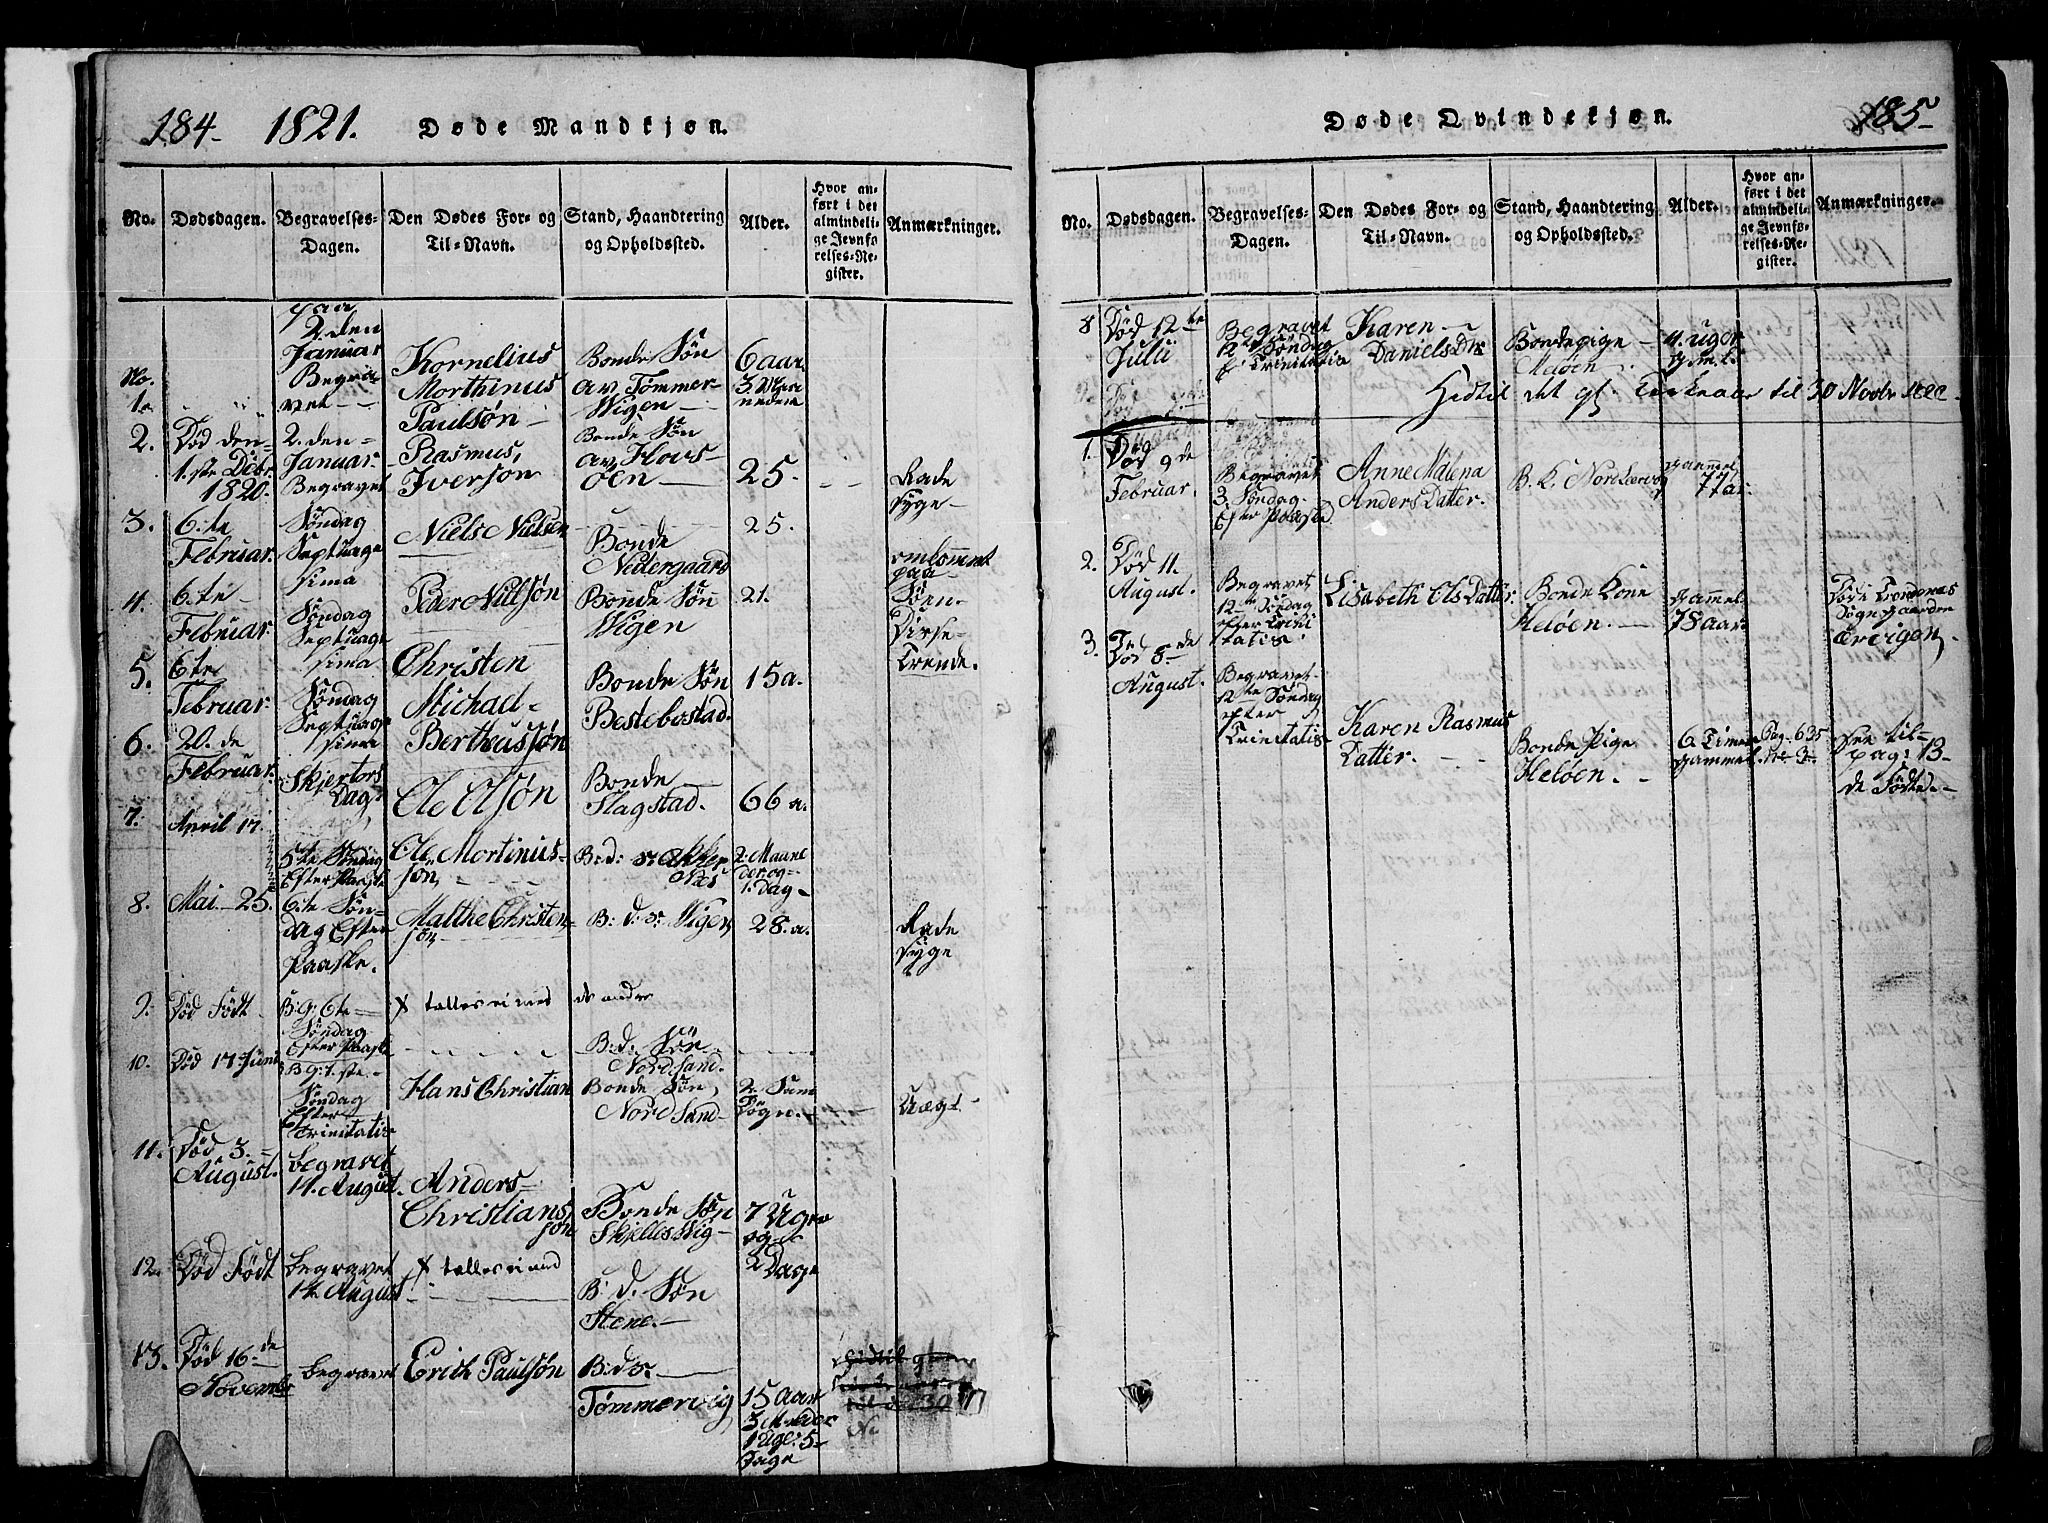 184. 1821. Døde Mandkjøn.
No. Dødsdagen. Begravelses-Dagen. Den Dødes For- og Til-Navn. Stand, Haandtering og Opholdssted. Alder. Hvor anført i det almindelige Jevnførelses-Register. Anmærkninger.
No. 1. paa 2. den Januar Begravet Kornelius Morthinus Paulsøn Bonde Søn av Tømmer Wigen 6 aar 3 Maaneder
2. Død den 1. ste Debr. 1820. 2. den Januar Begravet Rasmus Iverson Bonde Søn av Flovsöen 25. Rade syge
3. 6.te Februar. Søndag Septuagesima Niels Nielsen Bonde Nedergaard 25.
4. 6.te Februar. Søndag Septuagesima Peder Nielsøn Bonde Søn Wigen 21. omkommet paa Søen
5. 6te Februar Søndag Septuagesima Christen Michael Bertheussøn Bonde Søn Bestebostad. 15 a.
6. 20. de Februar. Skjertors Dag Ole Olsøn Bonde Slagstad. 66 a.
7. April 17. 5te Søndag Efter Paaske Ole Mortinussøn B: d: s: Akker Næs 2: Maaneder og 1. Dag
8. Mai 25. 6te Søndag Efter Paaske. Malthe Christensøn B: d: s: Wigen 28. a. Rade syge
9. Død Født B: g: 6te Søndag Efter Paaske × tælles ei med de andre B: d: Søn Nordsand.
10. Død 17. Juni B: g: 1. ste Søndag Efter Trinitatis Hans Christian Bonde Søn, Nord Sand 2. Døgn. Uægt.
11. Død 3. August. begravet 14. August. Anders Christianssøn Bonde Søn Skjelleswig 7 Uger og 2 Dage
12. Død Født begravet 14 August × tælles ei med B: d. Søn Stene.
13. Død 16 de Novembr begravet Erich Paulsøn B: d s. Tømmervig 15 Aar 3 Mander 1 Uge: 5 Dage
185 Døde Qvindekjøn.
No. Dødsdagen. Begravelses-Dagen. Den Dødes For- og Til-Navn. Stand, Haandtering og Opholdssted. Alder. Hvor anført i det almindelige Jevnførelses-Register. Anmærkninger.
8 Død 12 te Julii Begravet 12te Søndag E: Trinitatis Karen Daniels Dr. Bondepige Meløen 4. uger
Hidtil det gl. Kirkeaar til 30 Novbr
1. Død 9 de Februar. Begravet 3. Søndag Efter Paaske Anne Malena Anders Datter. B. K. gammel 77 ar.
2. Død 11. August. Begravet 12te Søndag efter Trinitatis. Lisabeth Ols Datter. Bonde Kone Heløen. gammel 78 aar. Døde Trondenæs Sogn paa gaarden Ervigen.
3. Død 8 de August. Begravet 12 te Søndag efter Trinitatis Karen Rasmus Datter. Bonde Pige Heløen. 6 Timer gammel. Pag. 635 No 3. See til pag: 13 de Fødte.